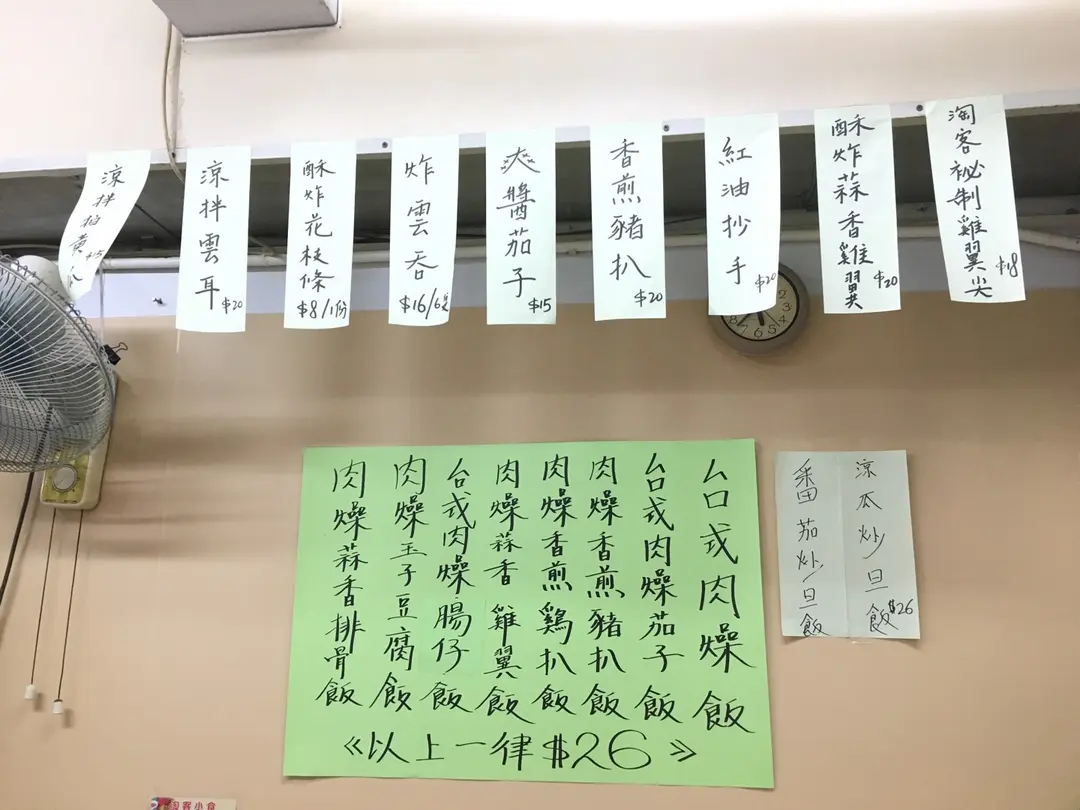 淘客秘制雞翼尖 $18
酥炸蒜香雞翼 $20
紅油抄手 $20
香煎豬扒 $20
爽醬茄子 $15
炸雲吞 $16/6隻
酥炸花枝條 $8/1份
涼拌雲耳 $20
涼拌拍黃瓜 $15
涼瓜炒旦飯 $26
番茄炒旦飯
台式肉燥飯
台式肉燥茄子飯
肉燥香煎豬扒飯
肉燥香煎鷄扒飯
肉燥蒜香雞翼飯
台式肉燥腸仔飯
肉燥玉子豆腐飯
肉燥蒜香排骨飯
《以上一律$26》
淘客小食